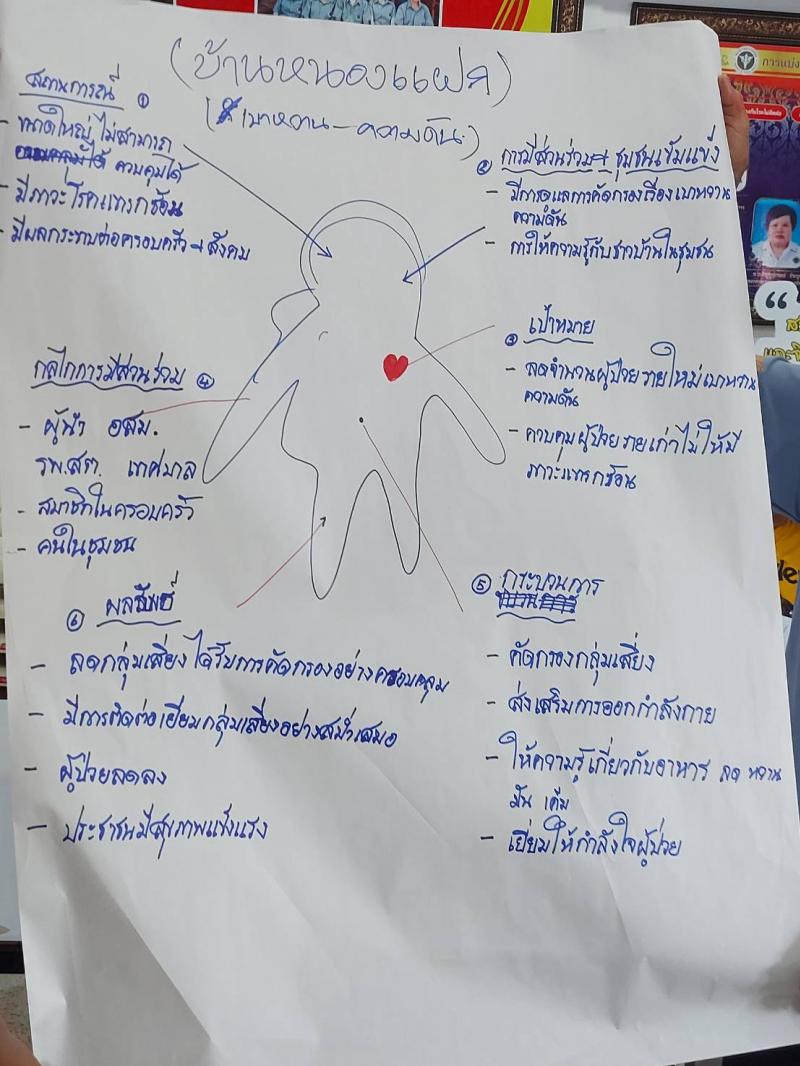 (บ้านหนองแฝก)
(เบาหวาน-ความดัน)
สถานการณ์ ①
- ขาดใหญ่ ไม่สามารถ
ควบคุมได้
- มีภาวะโรคแทรกซ้อน
- มีผลกระทบต่อครอบครัว + สังคม
② การมีส่วนร่วม + ชุมชนเข้มแข็ง
- มีการดูแลการคัดกรองเรื่องเบาหวาน
ความดัน
- การให้ความรู้กับชาวบ้านในชุมชน
③ เป้าหมาย
- ลดจำนวนผู้ป่วยรายใหม่เบาหวาน
ความดัน
- ควบคุมผู้ป่วยรายเก่าไม่ให้มี
ภาวะแทรกซ้อน
กลไกการมีส่วนร่วม ④
- ผู้นำ อสม.
รพ.สต. เทศบาล
- สมาชิกในครอบครัว
- คนในชุมชน
⑤ กระบวนการ
- คัดกรองกลุ่มเสี่ยง
- ส่งเสริมการออกกำลังกาย
- ให้ความรู้เกี่ยวกับอาหาร ลด หวาน
มัน เค็ม
- เยี่ยมให้กำลังใจผู้ป่วย
⑥ ผลลัพธ์
- ลดกลุ่มเสี่ยงได้รับการคัดกรองอย่างครอบคลุม
- มีการติดต่อเยี่ยมกลุ่มเสี่ยงอย่างสม่ำเสมอ
- ผู้ป่วยลดลง
- ประชาชนมีสุขภาพแข็งแรง
การแบ่ง